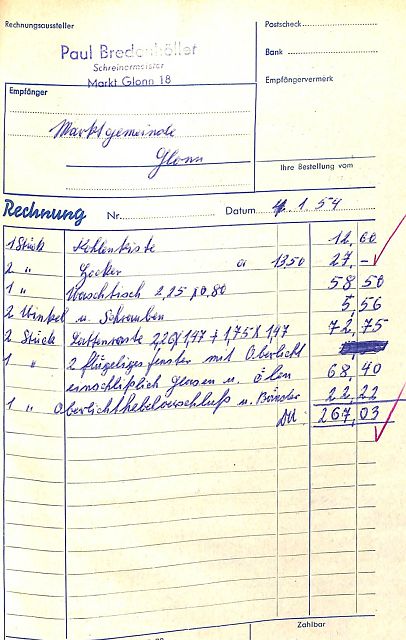 Rechnungsaussteller
Postscheck
Paul Bredenhöller
Schreinermeister
Markt Glonn 18
Bank
Empfängervermerk
Empfänger
Marktgemeinde
Glonn
Ihre Bestellung vom
Rechnung Nr. Datum 4. 1. 54
1 Stück Kohlenkiste 12,60
2 " Hocker à 13.50 27,-
1 " Waschtisch 2,25 x 0,80 58,50
2 Winkel u. Schrauben 5,56
2 Stück Lattenroste 2,20 x 1,47 + 1,75 x 1,47 72,75
1 " 2 flügeliges Fenster mit Oberlicht
einschlißlich glasen u. Ölen 68,40
1 " Oberlichthebelverschluß u. Bänder 22,22
DM: 267,03
Zahlbar